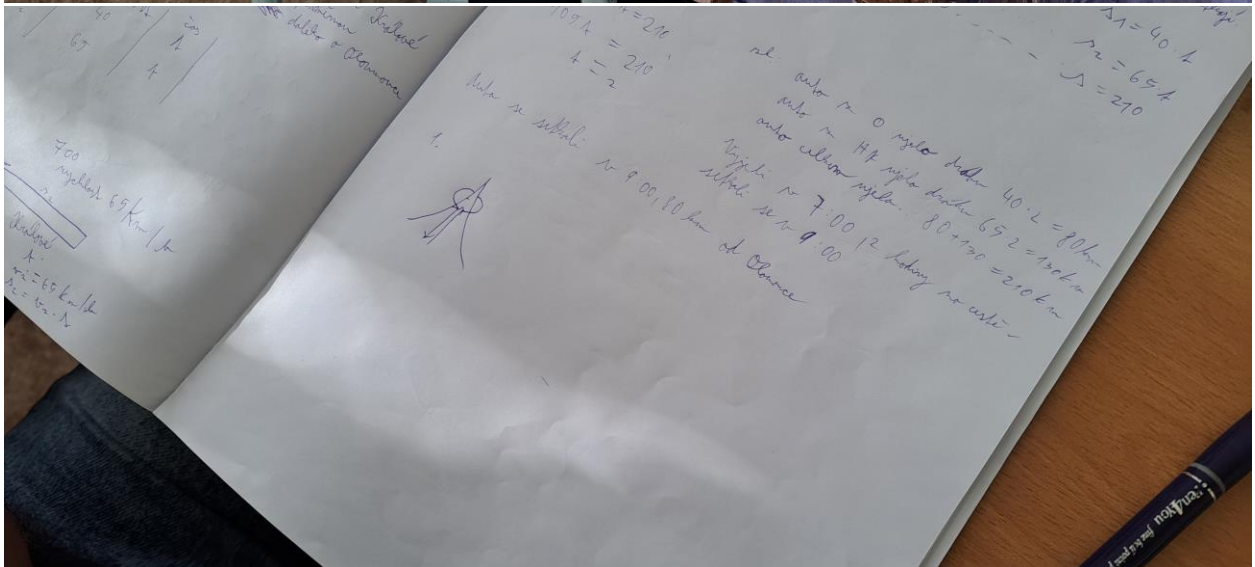 40
čas
65
t
t
Králové
daleko o Olomouce
700
rychlost 65 Km/h
s2
Králové
t
v2 = 65 Km/h
s2 = v2 · t
s1 = 40 · t
s2 = 65 t
s = 210
= 210
105 t = 210
t = 2
zk. auto z O ujelo dráhu 40 · 2 = 80 km
auto z HK ujelo dráhu 65 · 2 = 130 km
auto celkem ujela. 80 + 130 = 210 km
Vyjeli v 7:00, 2 hodiny na cestě -
setkali se v 9:00
Auta se setkali v 9:00, 80 km od Olomouce
1.
Pen4You